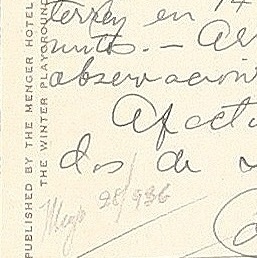 PUBLISHED BY THE MENGER HOTEL
THE WINTER PLAYGROUND
terrey en 14
observacion
Afectu
dos de
Mayo 28/936